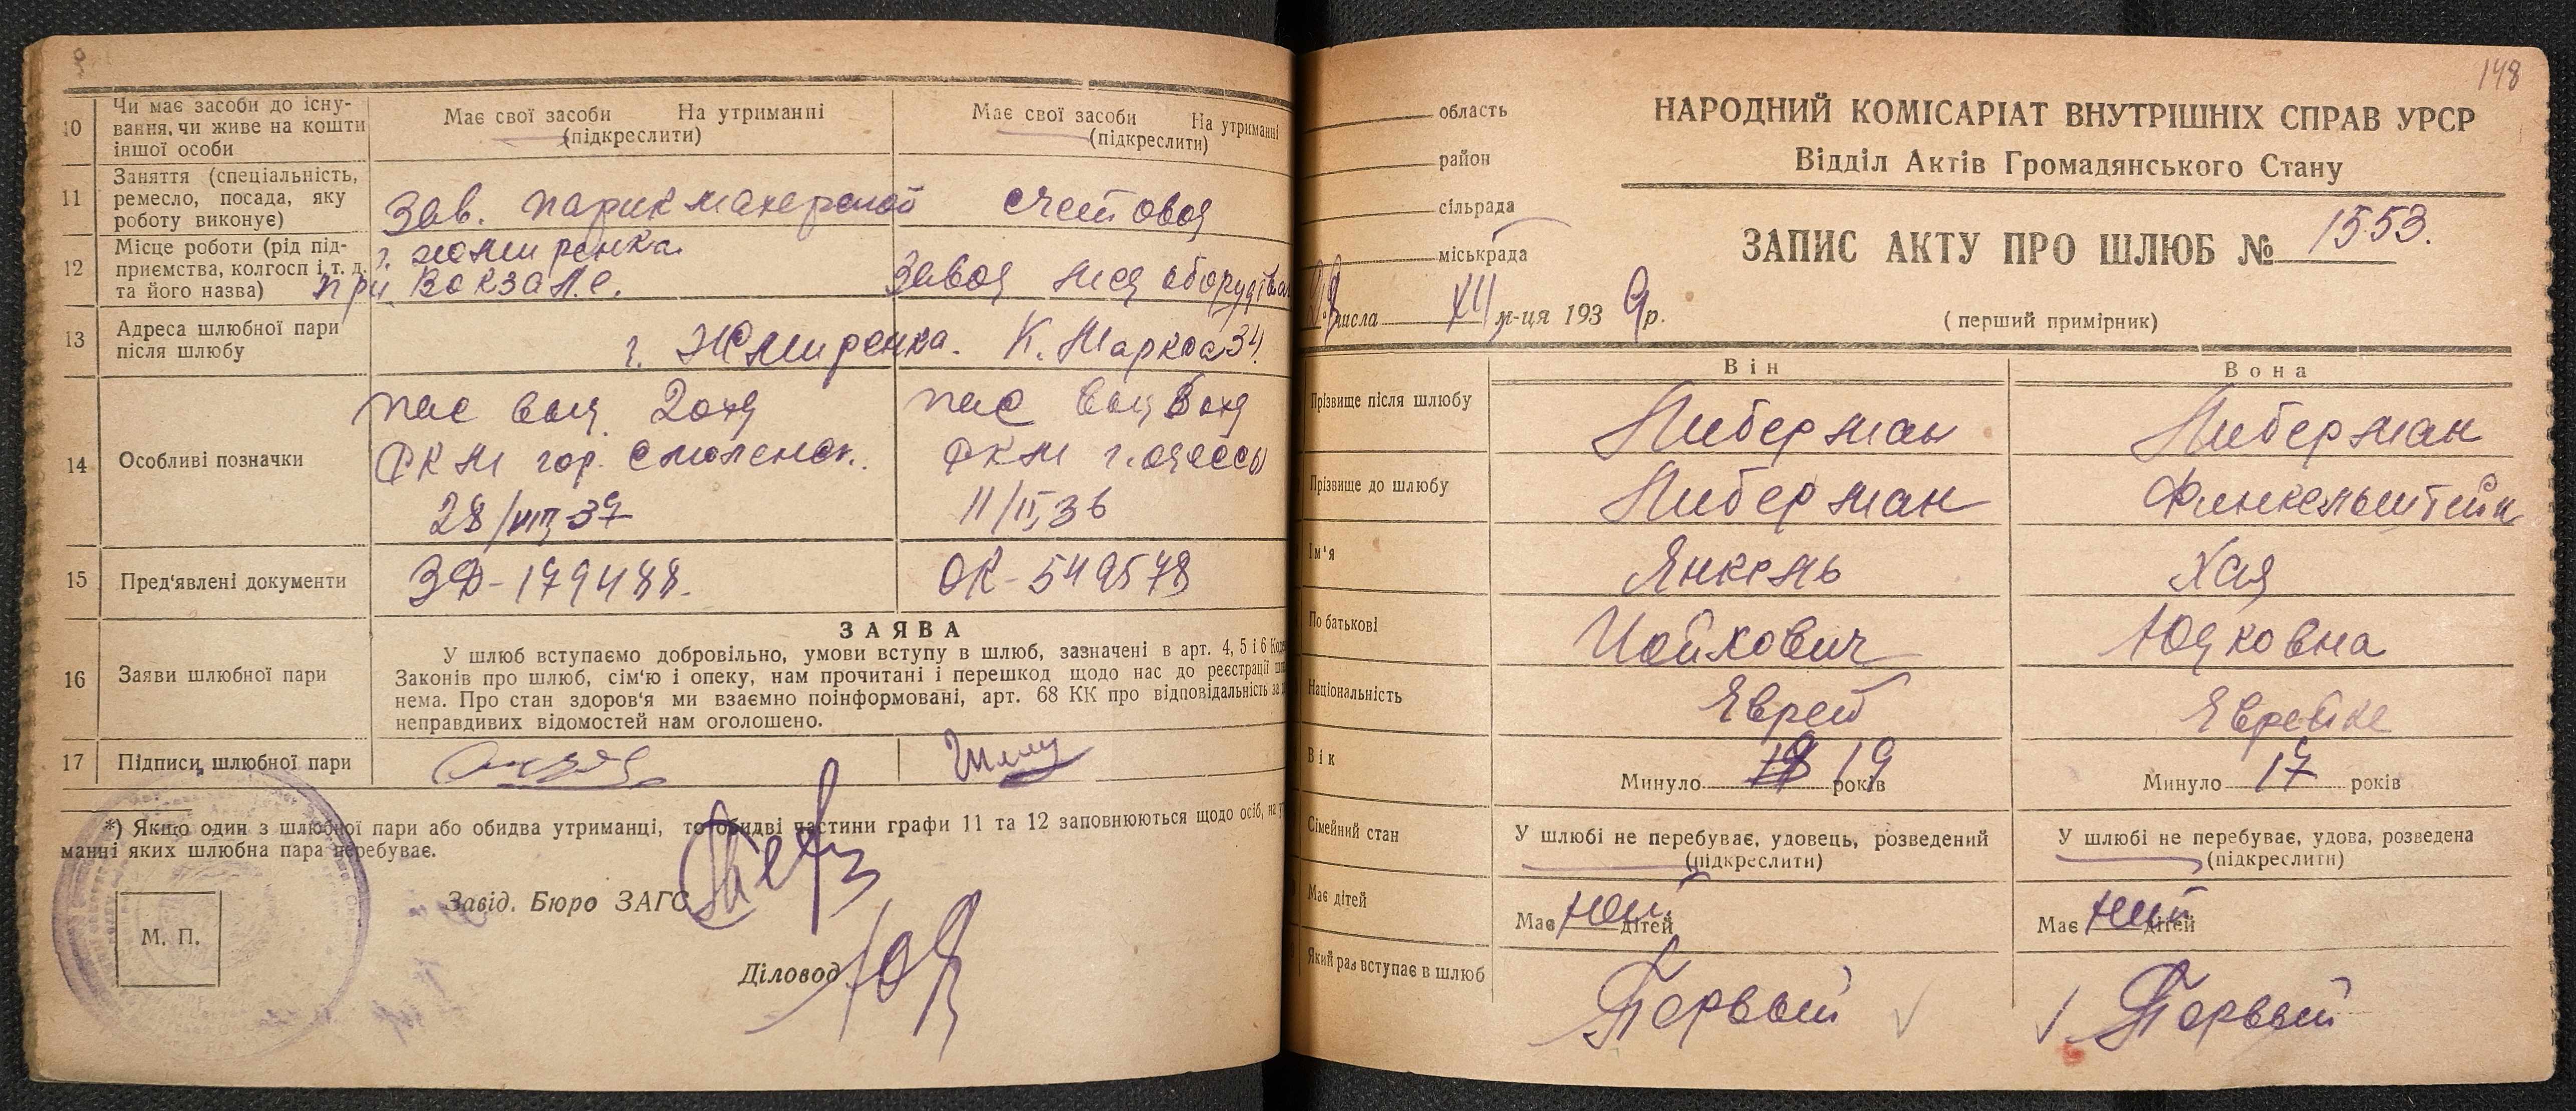 10
Чи має засоби до існу-
вання, чи живе на кошти
іншої особи
Має свої засоби На утриманні
(підкреслити)
Має свої засоби На утриманні
(підкреслити)
11
Заняття (спеціальність,
ремесло, посада, яку
роботу виконує)
Зав. парикмахерской
счетовод
12
Місце роботи (рід під-
приємства, колгосп і т. д.
та його назва)
г. Жмиренка
при вокзале.
Завод мед оборудован
13
Адреса шлюбної пари
після шлюбу
г. Жмиренка. К. Маркса 34.
14
Особливі позначки
пас выд. 2 отд
РКМ гор. Смоленск.
28/VIII 37
пас выд 8 отд
РКМ г. Одессы
11/II 36
15
Пред'явлені документи
ЗФ-179488.
ОК-549578
16
Заяви шлюбної пари
ЗАЯВА
У шлюб вступаємо добровільно, умови вступу в шлюб, зазначені в арт. 4, 5 і 6
Законів про шлюб, сім'ю і опеку, нам прочитані і перешкод щодо нас до реєстрації
нема. Про стан здоров'я ми взаємно поінформовані, арт. 68 КК про відповідальність за
неправдивих відомостей нам оголошено.
17
Підписи шлюбної пари
*) Якщо один з шлюбної пари або обидва утриманці, то обидві частини графи 11 та 12 заповнюються щодо осіб, на
манні яких шлюбна пара перебуває.
Завід. Бюро ЗАГС
М. П.
Діловод
148
область
район
сільрада
міськрада
числа XII м-ця 1939 р.
НАРОДНИЙ КОМІСАРІАТ ВНУТРІШНІХ СПРАВ УРСР
Відділ Актів Громадянського Стану
ЗАПИС АКТУ ПРО ШЛЮБ № 1553.
(перший примірник)
Він
Вона
Прізвище після шлюбу
Либерман
Либерман
Прізвище до шлюбу
Либерман
Финкельштейн
Ім'я
Янкель
Хая
По батькові
Иойхович
Юдковна
Національність
Еврей
Еврейке
Вік
Минуло 19 років
Минуло 17 років
Сімейний стан
У шлюбі не перебуває, удовець, розведений
(підкреслити)
У шлюбі не перебуває, удова, розведена
(підкреслити)
Має дітей
Має дітей
Має дітей
Який раз вступає в шлюб
Первый
Первый